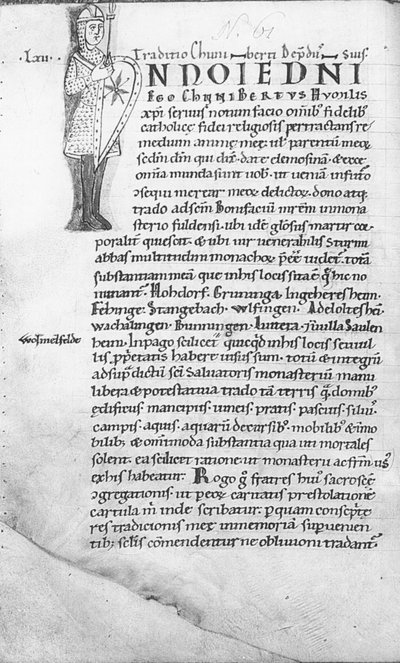 N. 61
Lxii. Traditio Chuniberti De pdiis Suis.
IN NOIE DNI
EGO CHUNIBERTUS humilis
xpi servus notum facio omibꝰ fidelibꝰ
catholicę fidei religiosis pertractans re
medium animę meę ul parentū meoꝝ
scdm dm qui dix. date elemosinā & ecce
omnia munda sunt vob. ut veniā
seqvi merear meoꝝ delictoꝝ. dono atq
trado ad scm Bonifaciū mrem in mona
sterio fuldensi. ubi idē gloss martir cor
poralit quiescit. & ubi vir venerabilis Sturmi
abbas multitudini monachoꝝ pęē videt. totā
substantiam meā. que in his locis sita ē. q̄ hic no
minant. Hohdorf. Gruninga. Ingeheresheim.
Fehinge. Stangebach. Wlfingen. Adeloltesheī
Wachalingen. Bunningen. Luttera. & in villa Saulen
heim. In pago scilicet
Wormelfelde
quicqd in his locis seu vil
lis ꝓprietatis habere visus sum. totū & integrū
ad sup dictū sci Salvatoris monasteriū manu
libera & potestativa trado tā terris q̄ domibꝰ
ędificiis. mancipiis. vineis. pratis. pascuis. silvis
campis. aquis. aquarū decursibꝰ. mobilibꝰ & īmo
bilibꝰ. & omīmoda substantia qua uti mortales
solent. ea scilicet ratione. ut monasterii
ex his habeatur. Rogo g fratres hui sacroscē
congregationis. ut p eoꝝ caritatis prestolatione
cartula m inde scribatur. p quam conscpte
res tradicionis meę in memoriā supvenien
tibꝰ sclis cōmendentur ne oblivioni tradant.